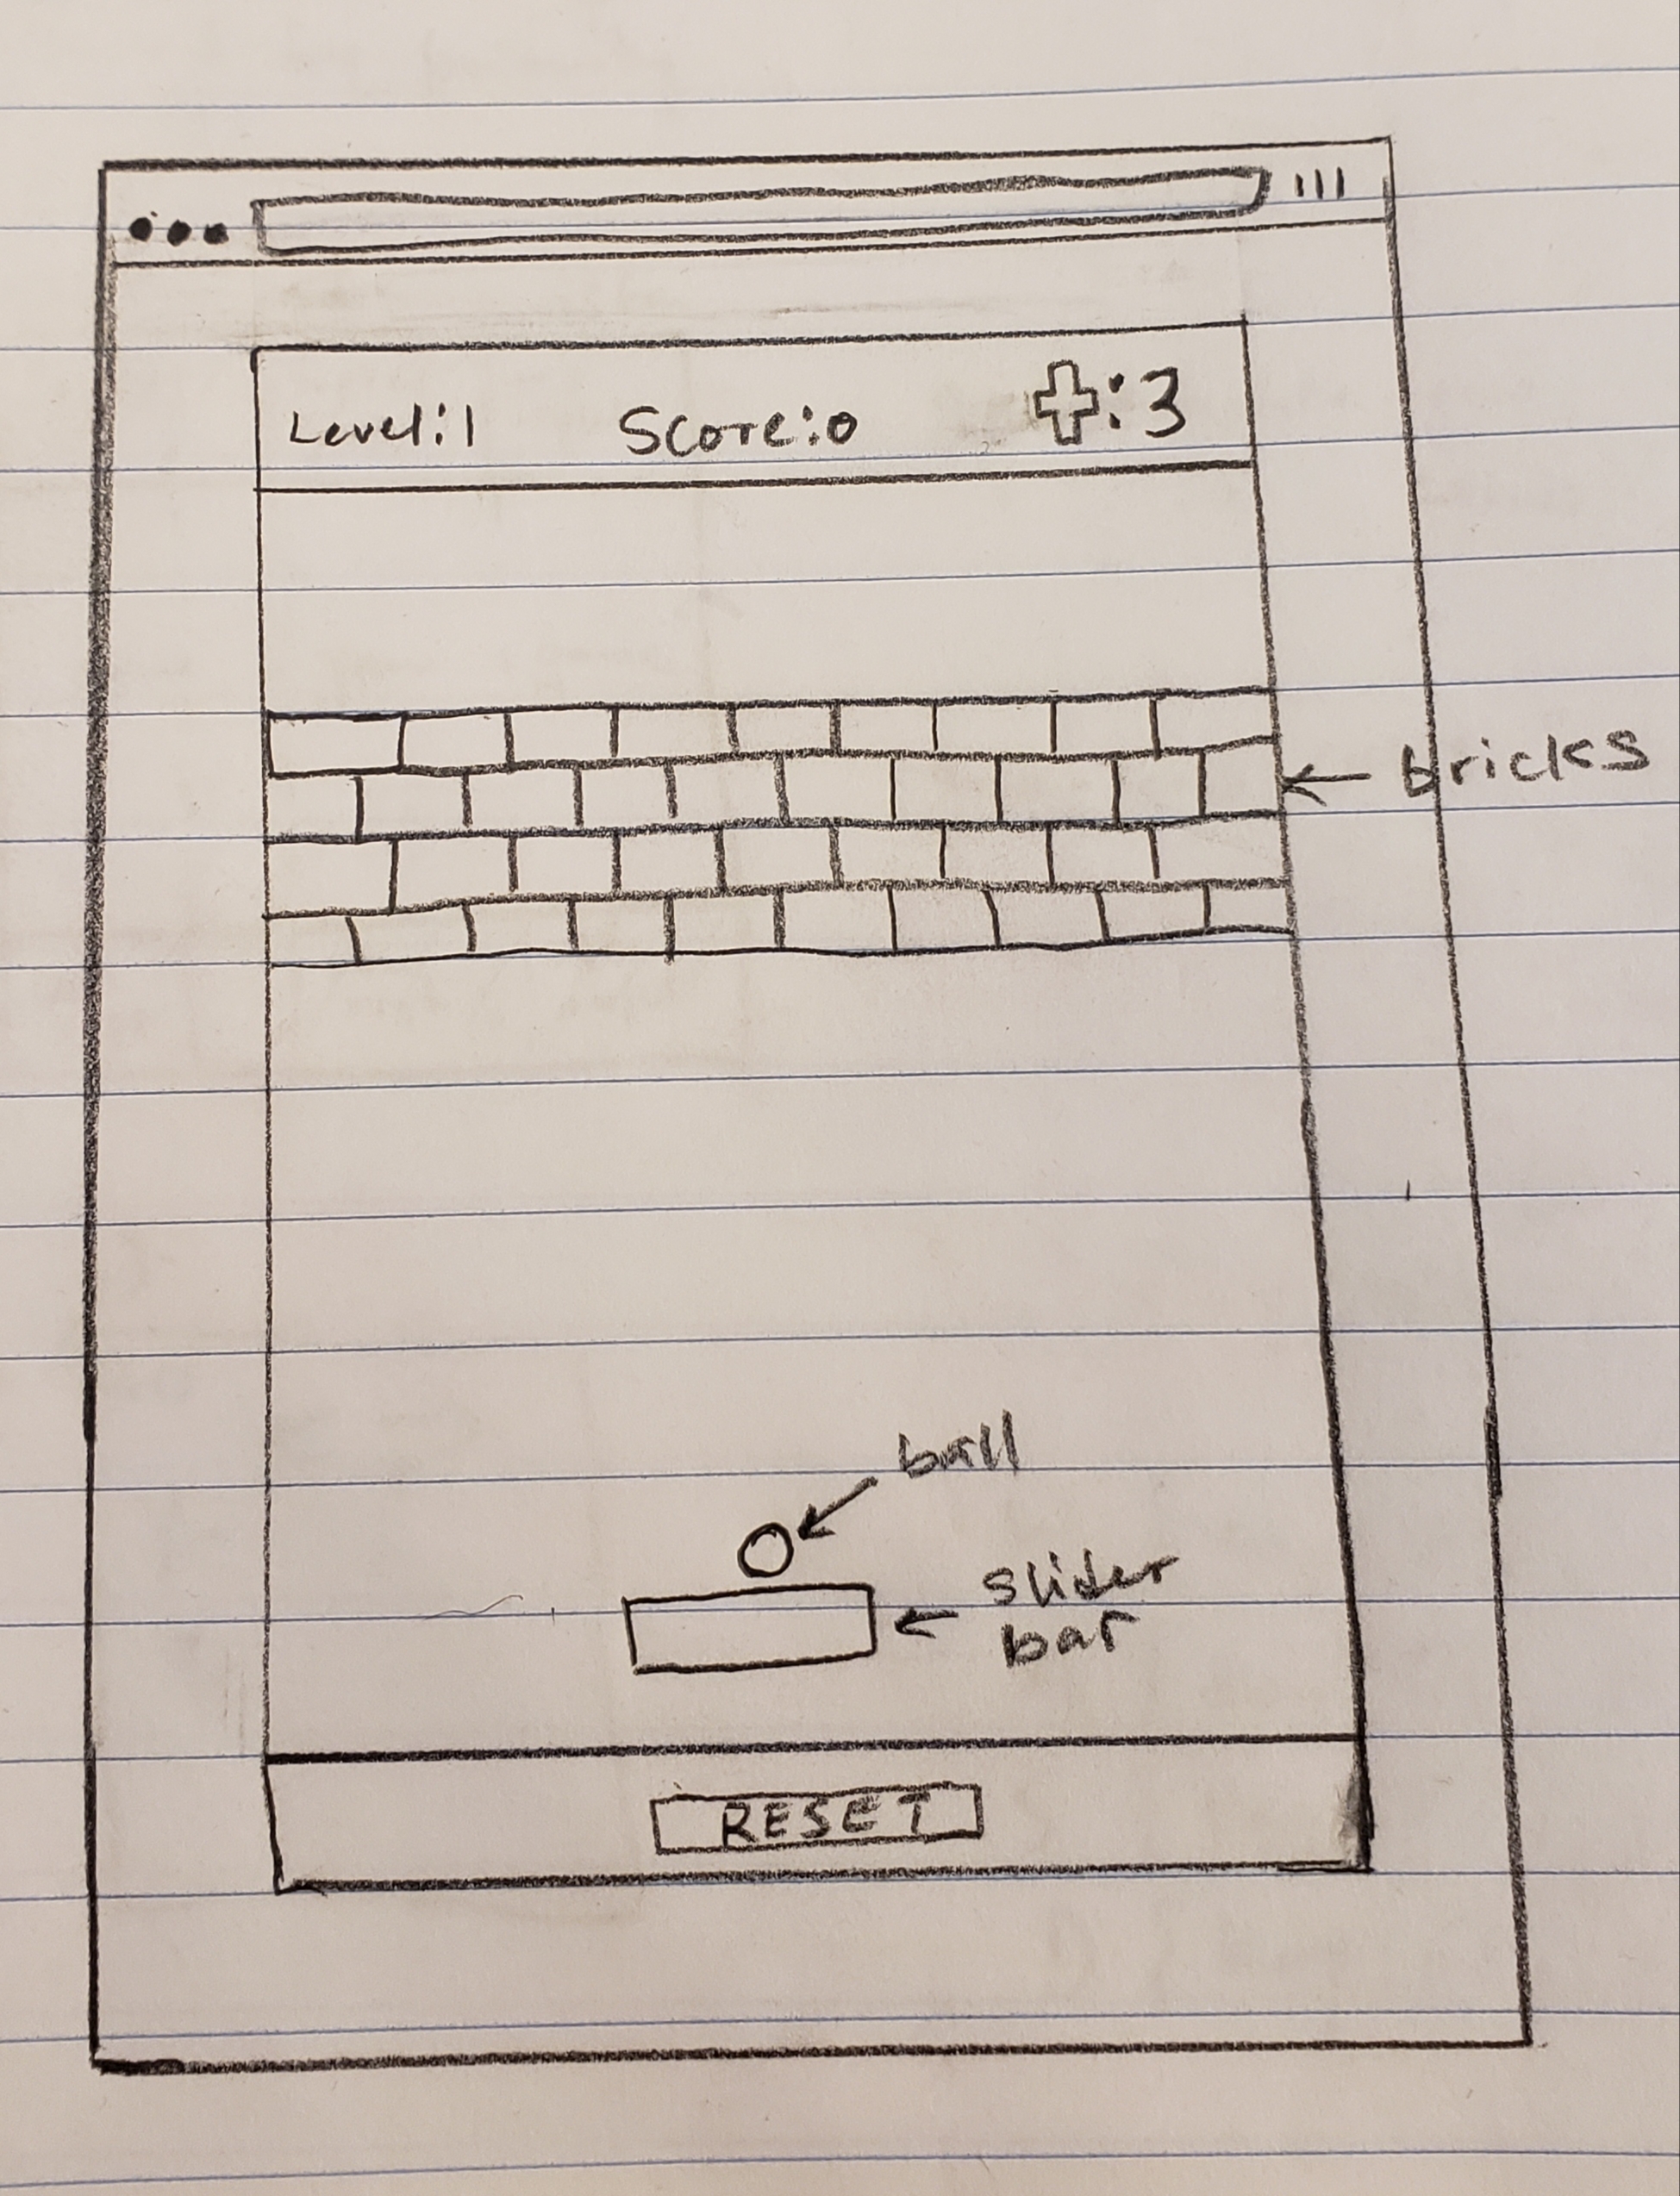 Level:1 Score:0 :3
bricks
ball
slider
bar
RESET